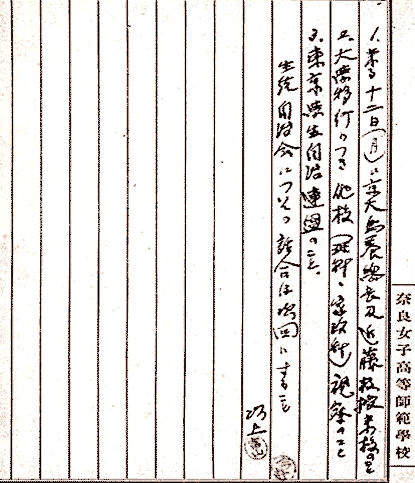 1. 来る十二日(月)に京大鳥養総長及近藤教授来校のこと
2. 大学移行につき他校(理科・家政科)視察のこと
3. 東京学生自治連盟のこと、
生徒自治会についての話合は次回にすること
以上
奈良女子高等師範學校